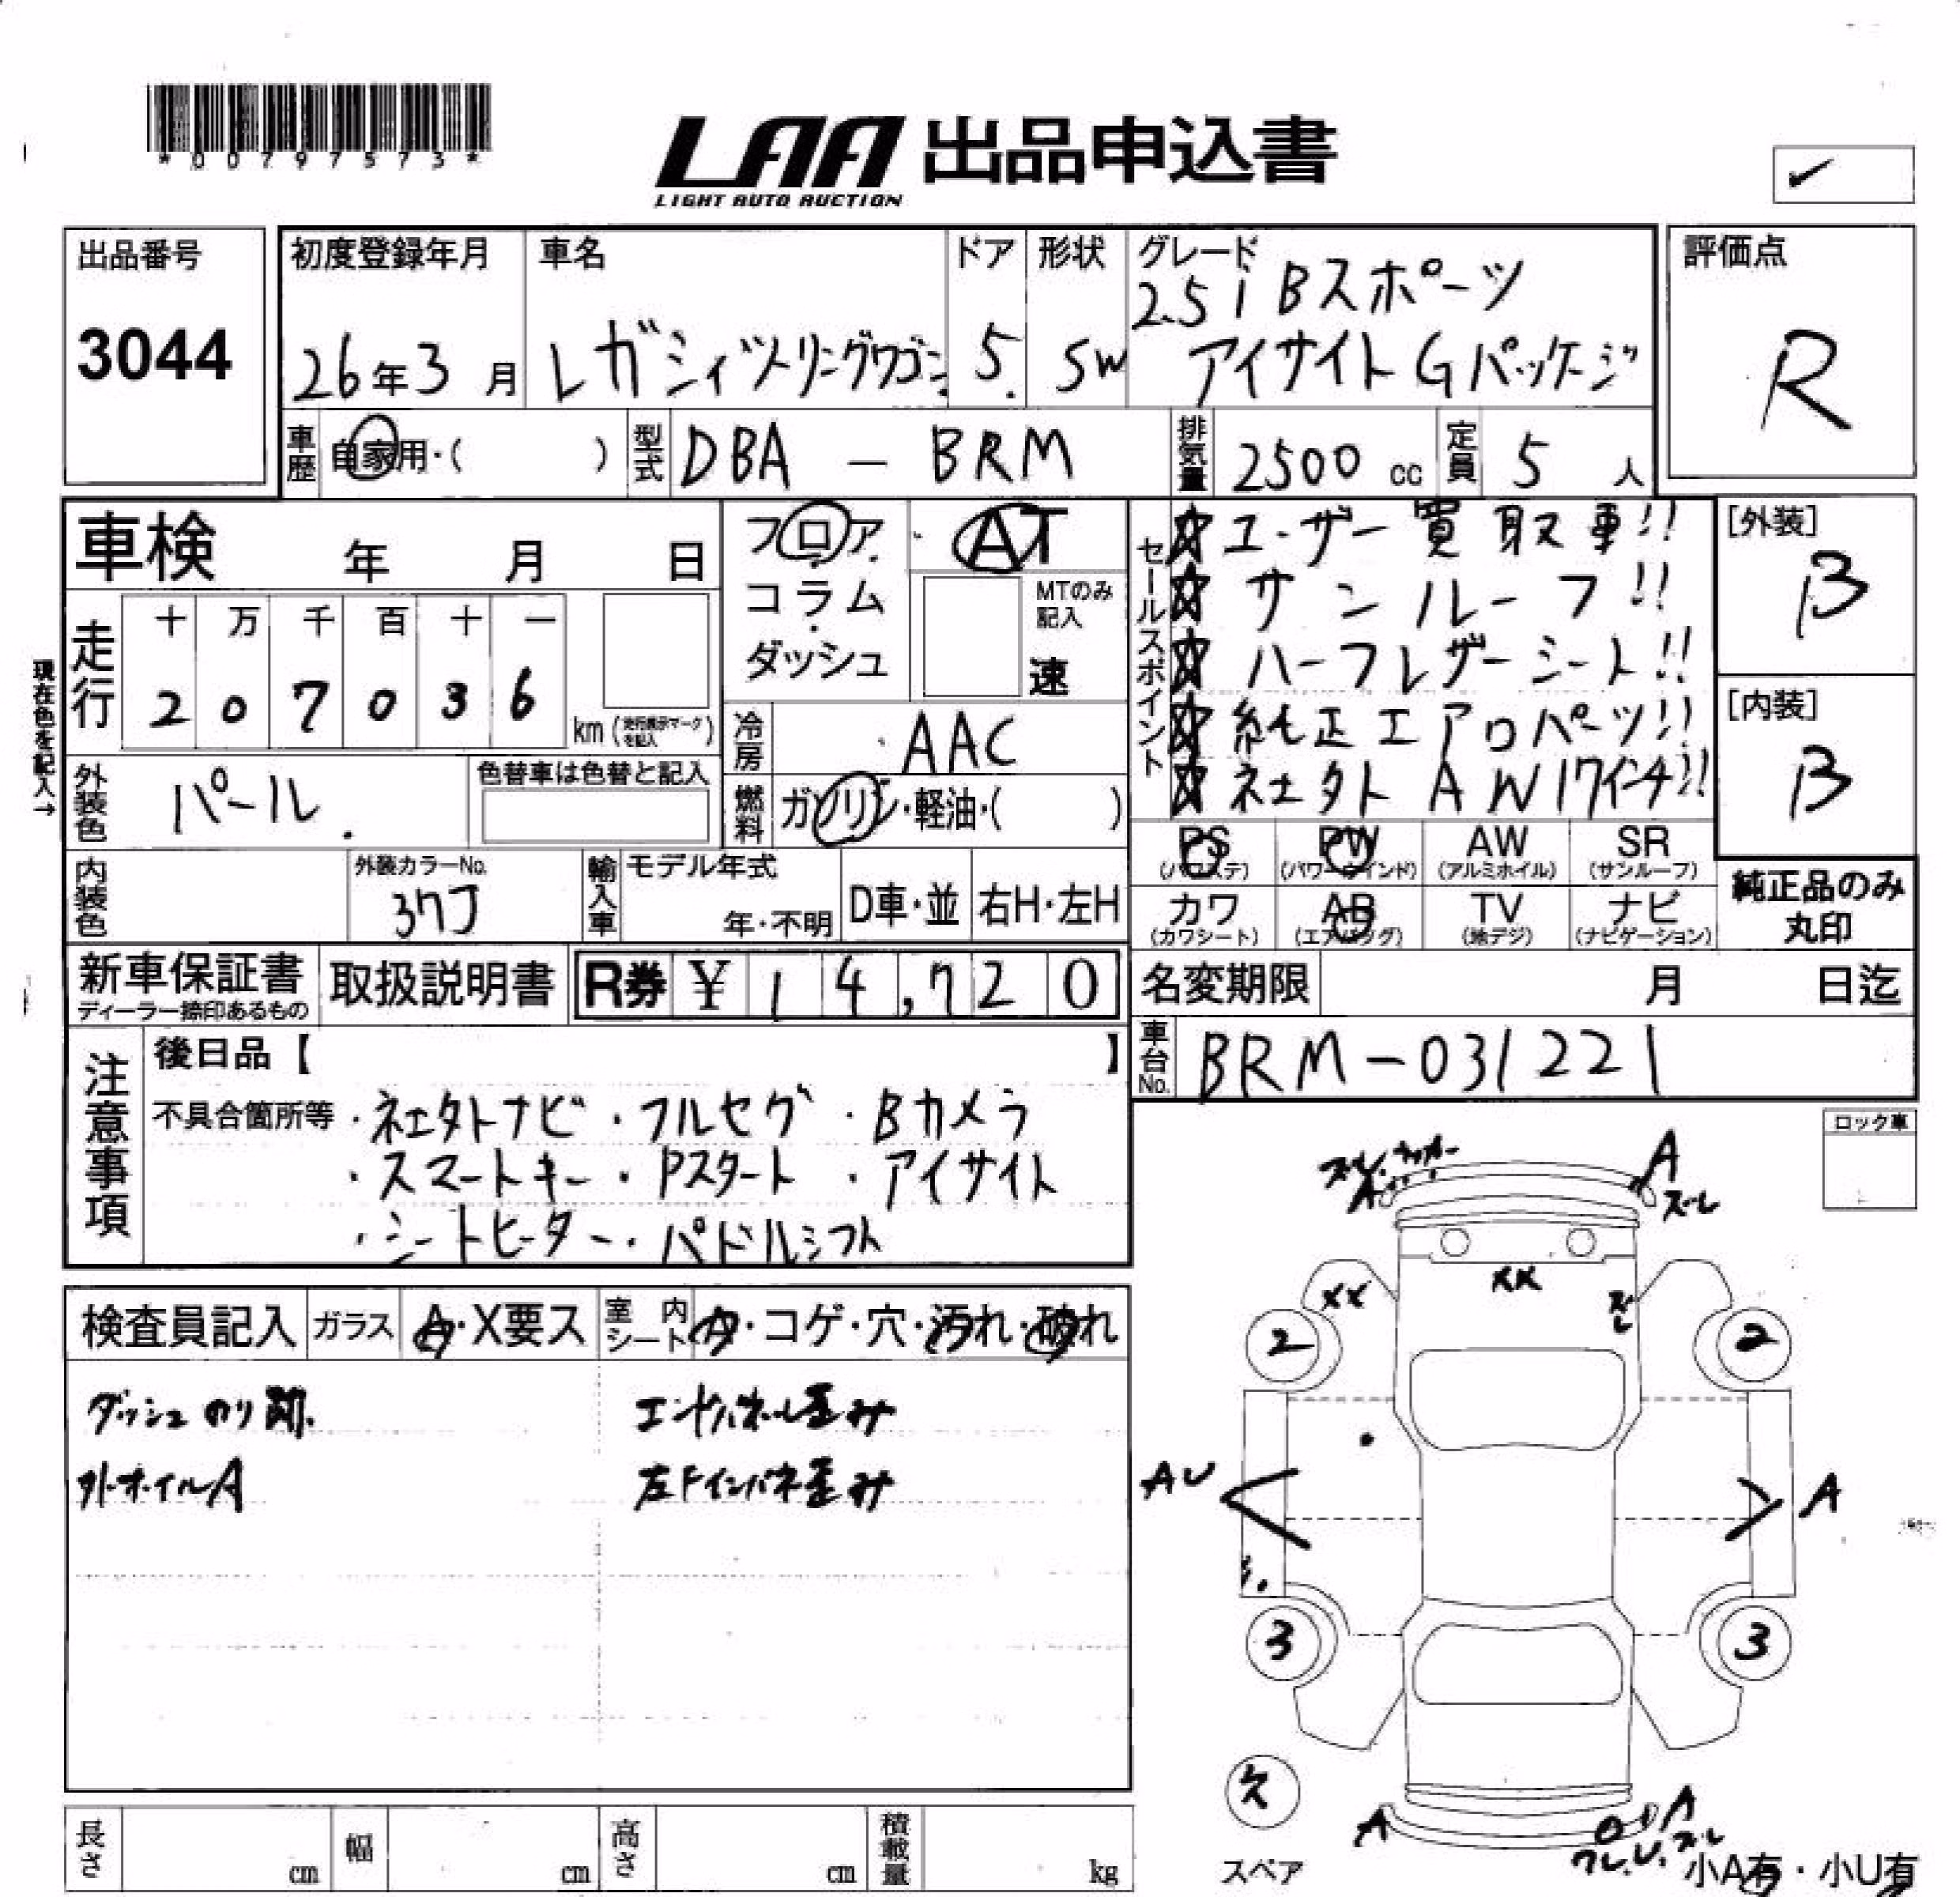 *00797573*
LAA 出品申込書
LIGHT AUTO AUCTION
出品番号
3044
初度登録年月
26年3月
車名
レガシィツーリングワゴン
ドア
5
形状
SW
グレード
2.5i Bスポーツ
アイサイト Gパッケージ
評価点
R
車歴
自家用・( )
型式
DBA - BRM
排気量
2500 cc
定員
5 人
車検 年 月 日
フロア
コラム
ダッシュ
AT
MTのみ
記入
速
現在色を記入→
走行
十 万 千 百 十 一
2 0 7 0 3 6
km (走行表示マークを記入)
冷房
AAC
燃料
ガソリン・軽油・( )
外装色
パール
色替車は色替と記入
内装色
外装カラーNo.
37J
輸入車
モデル年式
年・不明
D車・並
右H・左H
セールスポイント
☆ユーザー買取車!!
☆サンルーフ!!
☆ハーフレザーシート!!
☆純正エアロパーツ!!
☆ネエタト AW17インチ!!
[外装]
B
[内装]
B
PS
(パワステ)
PW
(パワーウインド)
AW
(アルミホイル)
SR
(サンルーフ)
カワ
(カワシート)
AB
(エアバッグ)
TV
(地デジ)
ナビ
(ナビゲーション)
純正品のみ
丸印
新車保証書
ディーラー捺印あるもの
取扱説明書
R券 ¥ 14,720
名変期限 月 日迄
車台No.
BRM-031221
注意事項
後日品【 】
不具合箇所等
・ネエタトナビ ・フルセグ ・Bカメラ
・スマートキー ・Pスタート ・アイサイト
・シートヒーター ・パドルシフト
ロック車
検査員記入
ガラス
A・X要ス
室内
シート
タ・コゲ・穴・汚れ・破れ
ダッシュのり跡
エンドパネル歪み
外ホイルA
左Fインパネ歪み
A
ズレ
XX
XX
ズレ
2
2
AU
A
3
3
欠
スペア
A
A
ワレ.U.ズレ
小A有・小U有
長さ cm
幅 cm
高さ cm
積載量 kg